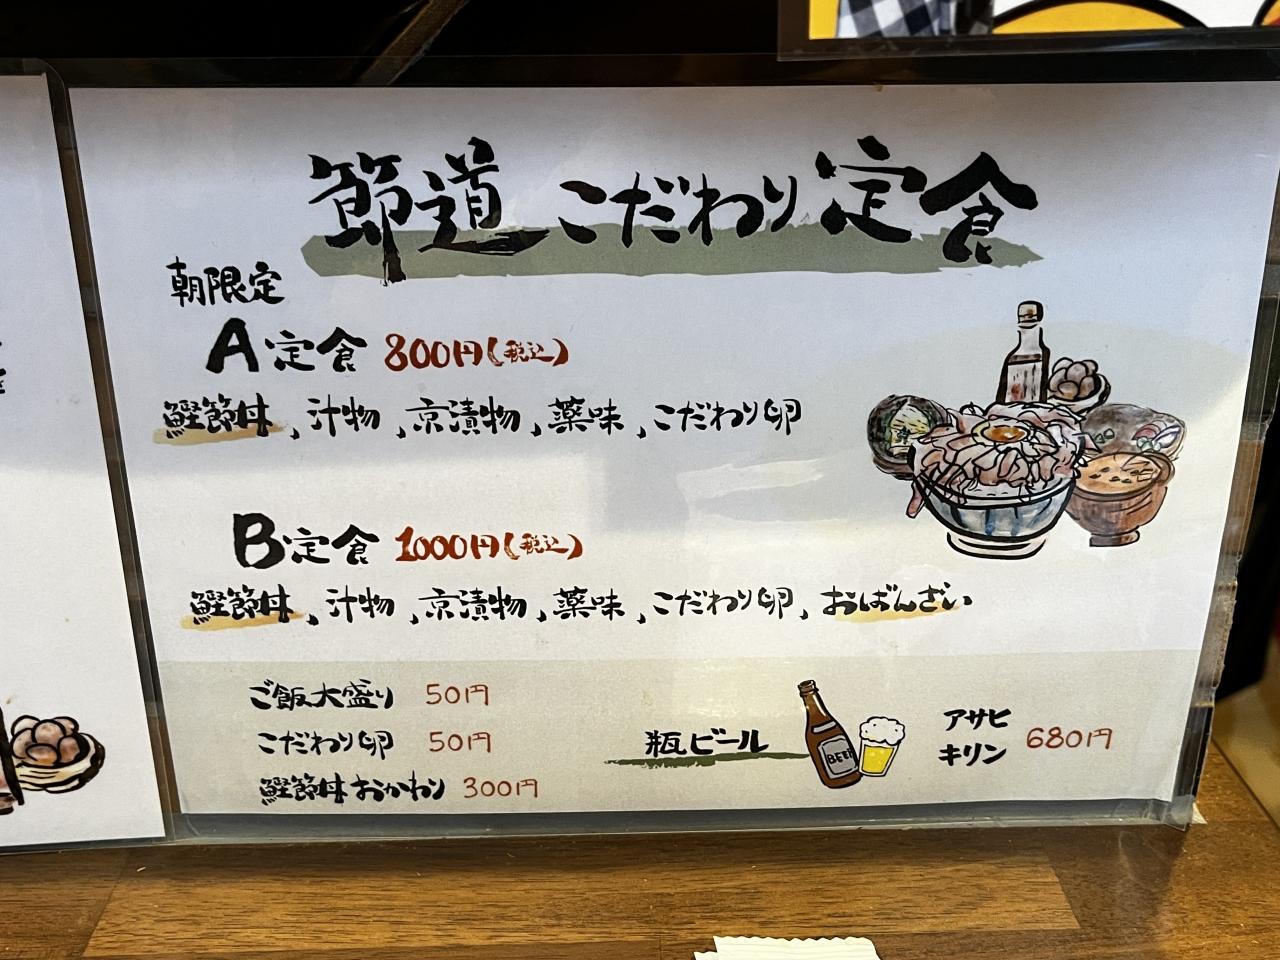 節道こだわり定食
朝限定
A定食 800円(税込)
鰹節丼、汁物、京漬物、薬味、こだわり卵
B定食 1000円(税込)
鰹節丼、汁物、京漬物、薬味、こだわり卵、おばんざい
ご飯大盛り 50円
こだわり卵 50円
鰹節丼おかわり 300円
瓶ビール
BEER
アサヒ
キリン
680円